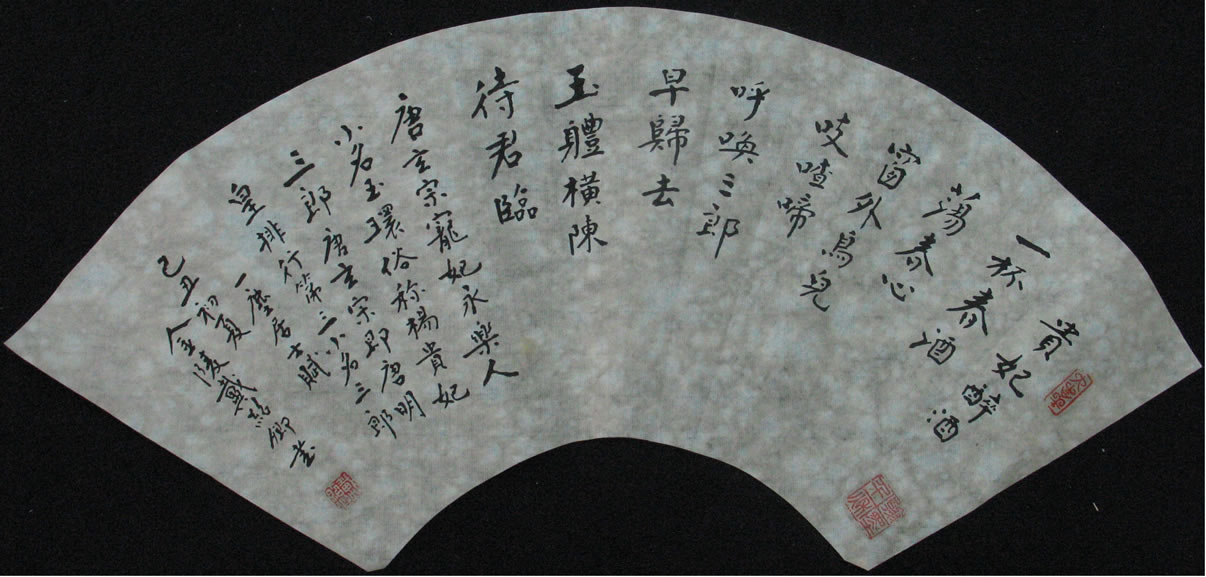 貴妃醉酒
一杯春酒
蕩春心
窗外鳥兒
吱喳啼
呼喚三郎
早歸去
玉體橫陳
待君臨
唐玄宗寵妃永樂人
小名玉環俗称楊貴妃
三郎唐玄宗即唐明
皇排行第三小名三郎
一塵居士賦
己丑初夏
金陵戴紹卿書